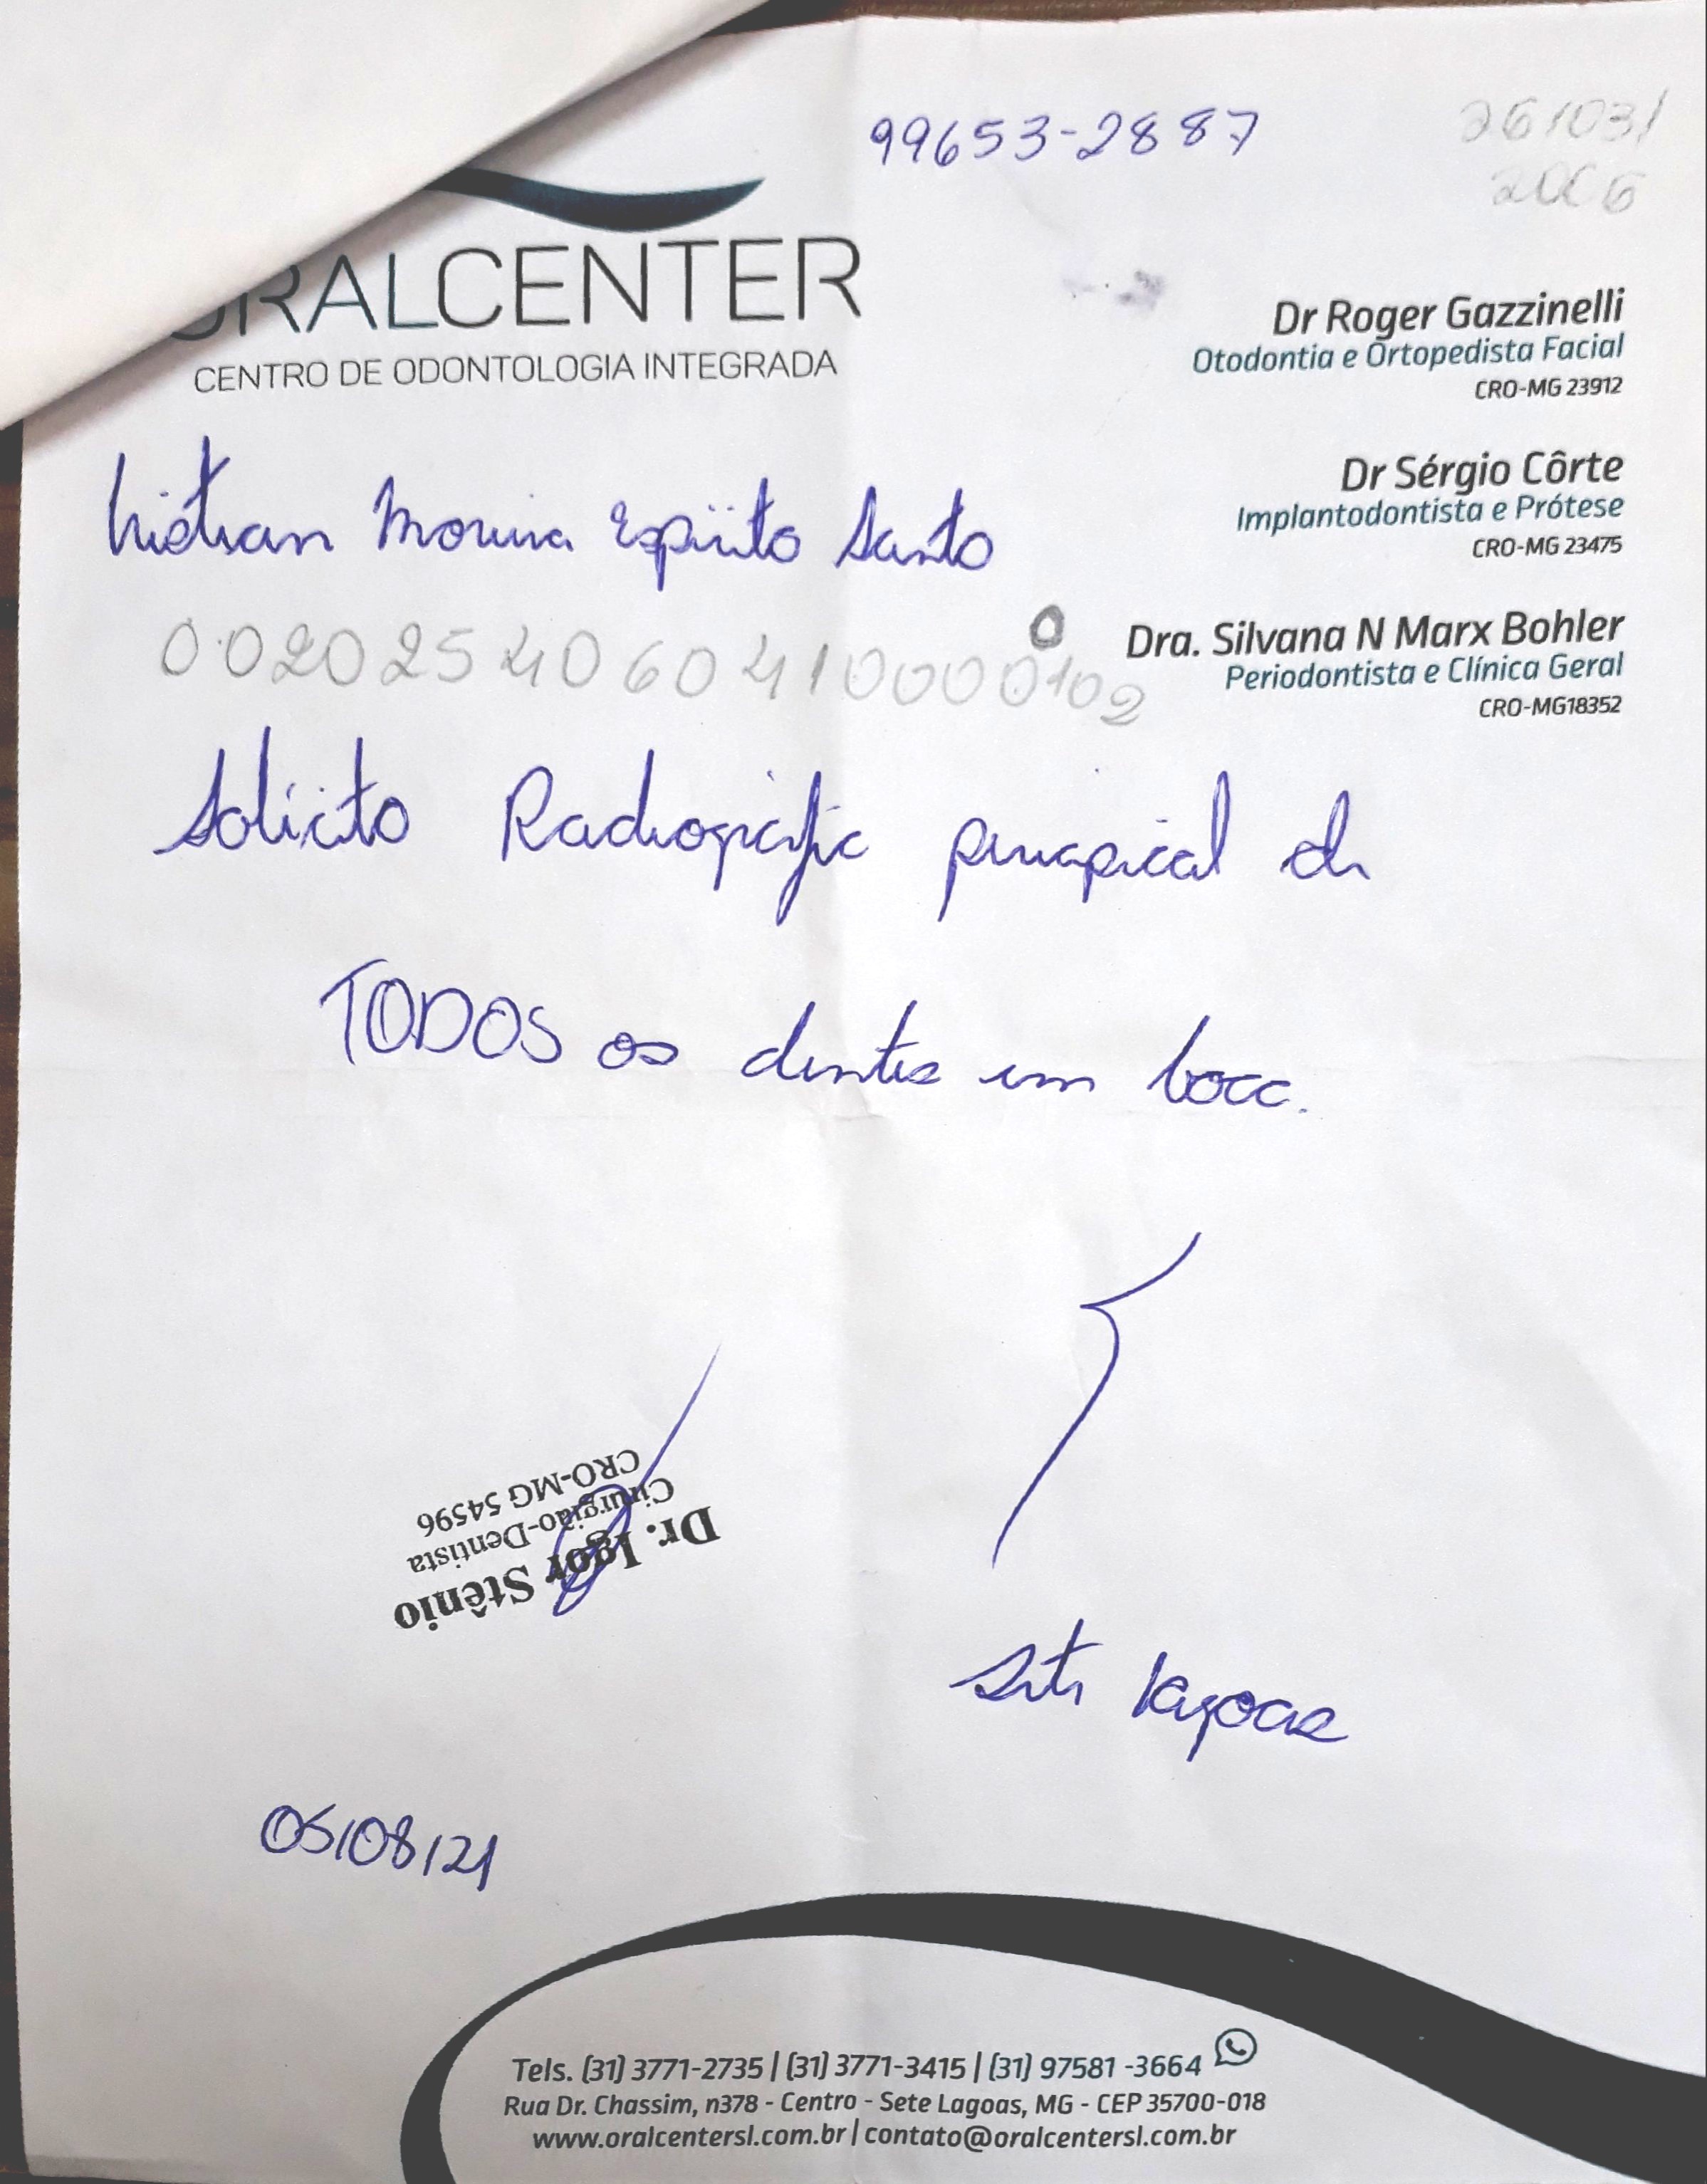 99653-2887
26/03/
2006
ORALCENTER
CENTRO DE ODONTOLOGIA INTEGRADA
Dr Roger Gazzinelli
Otodontia e Ortopedista Facial
CRO-MG 23912
Dr Sérgio Côrte
Implantodontista e Prótese
CRO-MG 23475
Dra. Silvana N Marx Bohler
Periodontista e Clínica Geral
CRO-MG18352
Moreira Espírito Santo
0020254060410000102
0
Solicito Radiografia periapical de
TODOS os dentes em boca.
Dr. Igor Stênio
Cirurgião-Dentista
CRO-MG 54596
Sete lagoas
05/08/21
Tels. (31) 3771-2735 | (31) 3771-3415 | (31) 97581 -3664
Rua Dr. Chassim, n378 - Centro - Sete Lagoas, MG - CEP 35700-018
www.oralcentersl.com.br | contato@oralcentersl.com.br